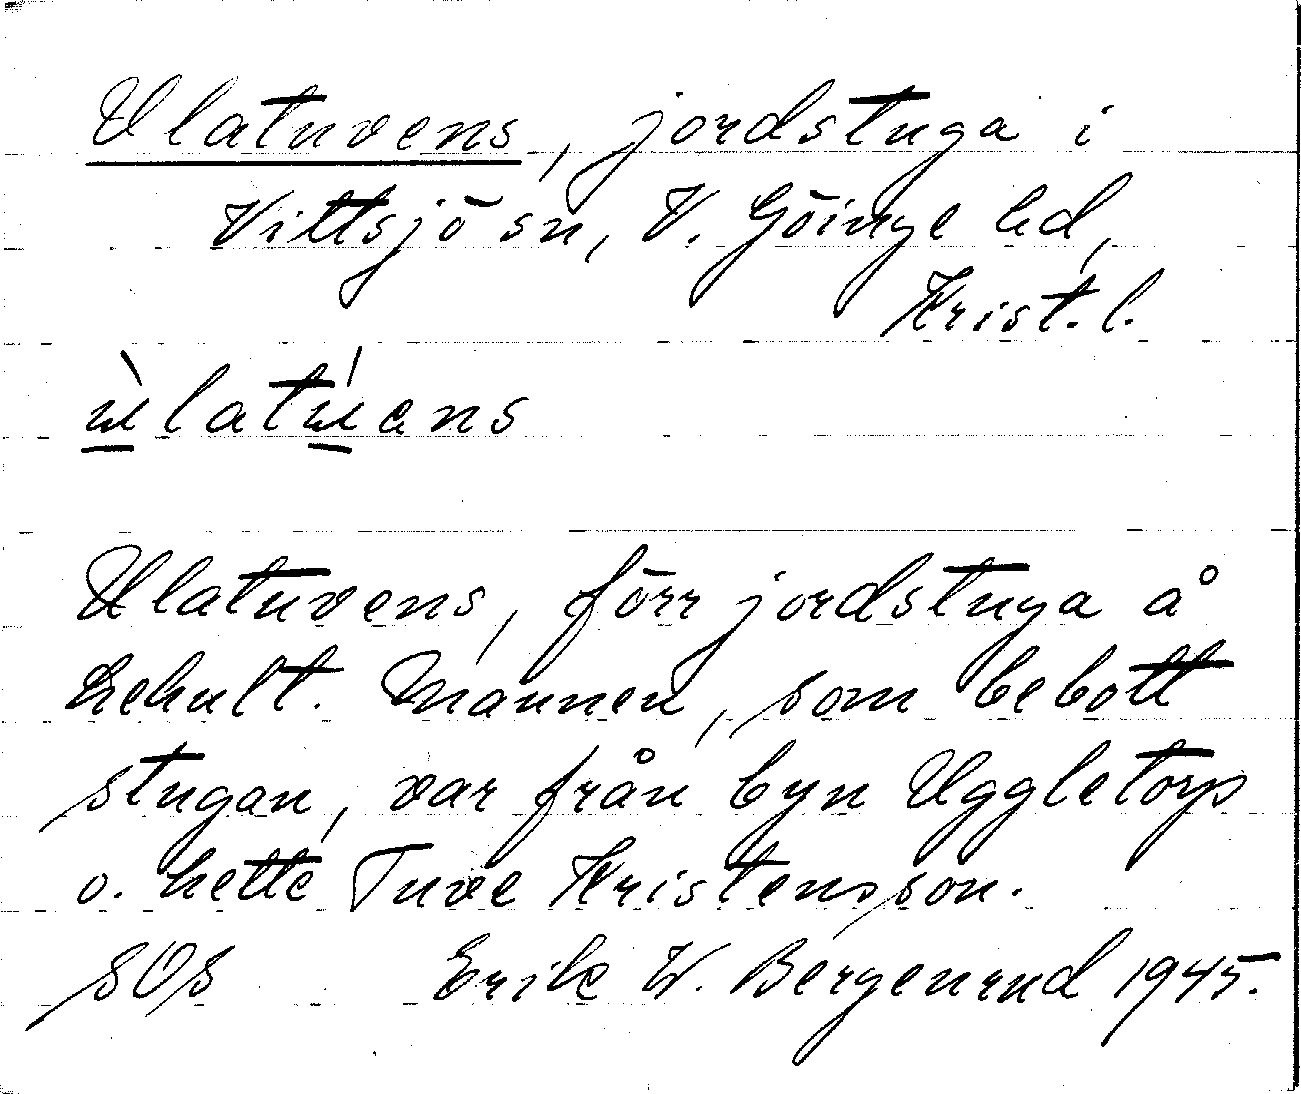 Ulatuvens, jordstuga i
Vittsjö sn, V. Göinge hd,
Krist. l.
Ulatuvens, förr jordstuga å
hehult. Mannen, som bebott
stugan, var från byn Uggletorp
o. hette Tuve Kristensson.
SOS Erik W. Bergenrud 1945.